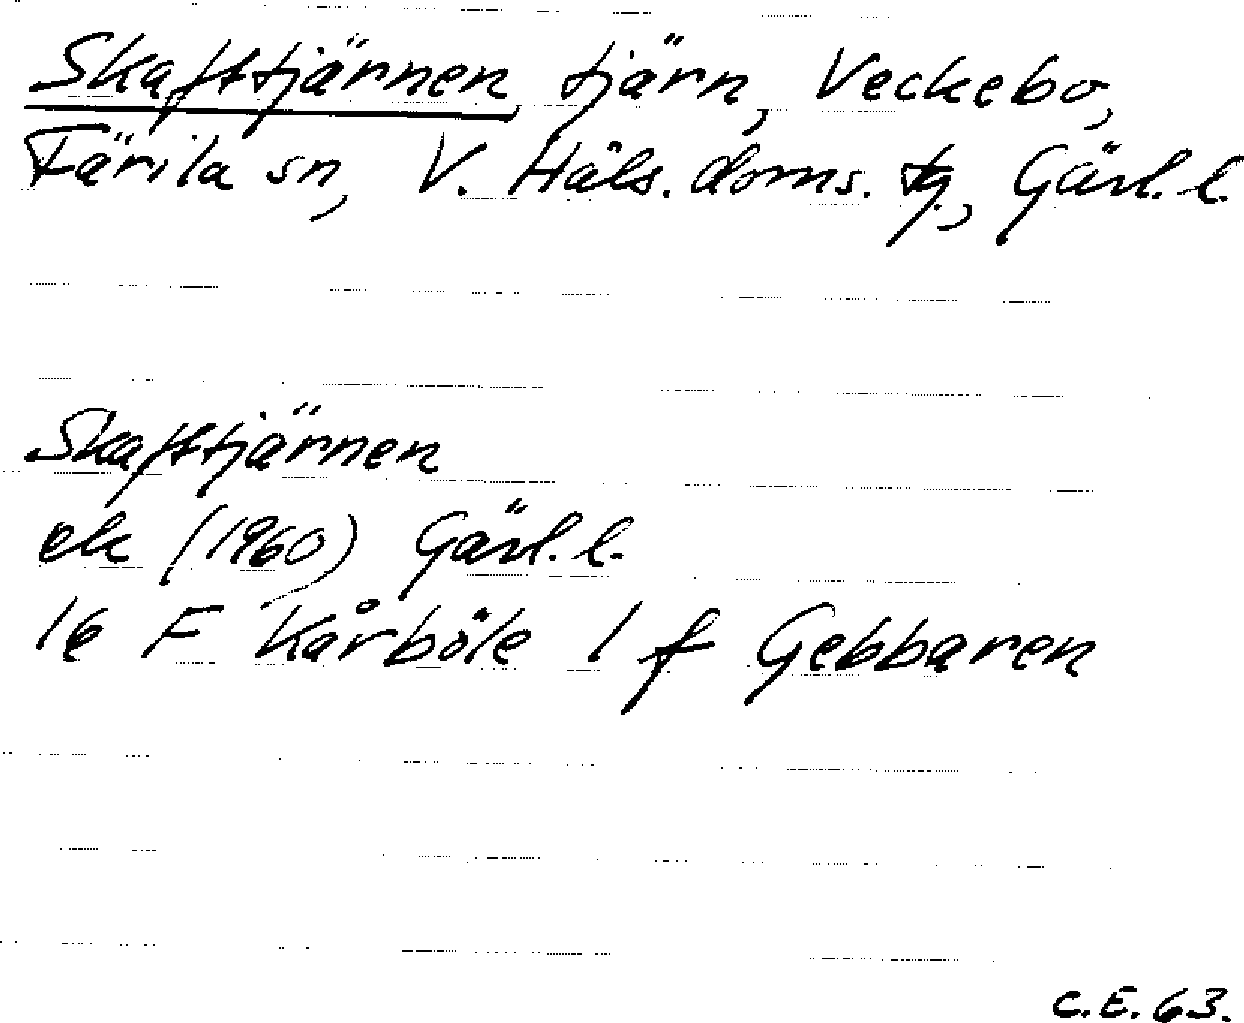 Skaftjärnen, tjärn, Veckebo,
Färila sn, V. Häls. doms. tg., Gävl. l.
Skaftjärnen
ek (1960) Gävl. l.
16 F Kårböle 1 f Gebbaren
C.E. 63.